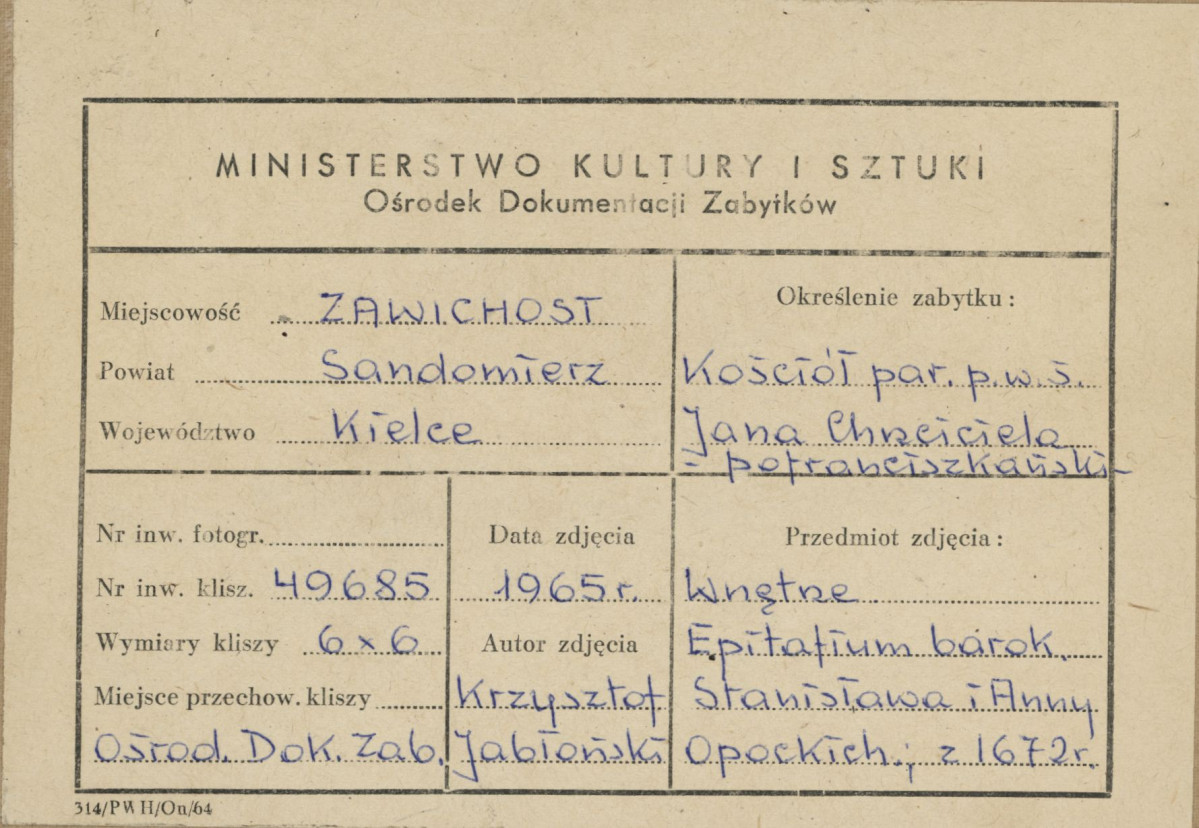 MINISTERSTWO KULTURY I SZTUKI
Ośrodek Dokumentacji Zabytków
Miejscowość ZAWICHOST
Powiat Sandomierz
Województwo Kielce
Określenie zabytku:
Kościół par. p.w. ś.
Jana Chrzciciela
- pofranciszkański -
Nr inw. fotogr.
Nr inw. klisz. 49685
Wymiary kliszy 6 x 6
Miejsce przechow. kliszy
Ośrod. Dok. Zab.
Data zdjęcia
1965 r.
Autor zdjęcia
Krzysztof
Jabłoński
Przedmiot zdjęcia:
Wnętrze
Epitafium barok.
Stanisława i Anny
Opockich; z 1672 r.
314/PWH/On/64